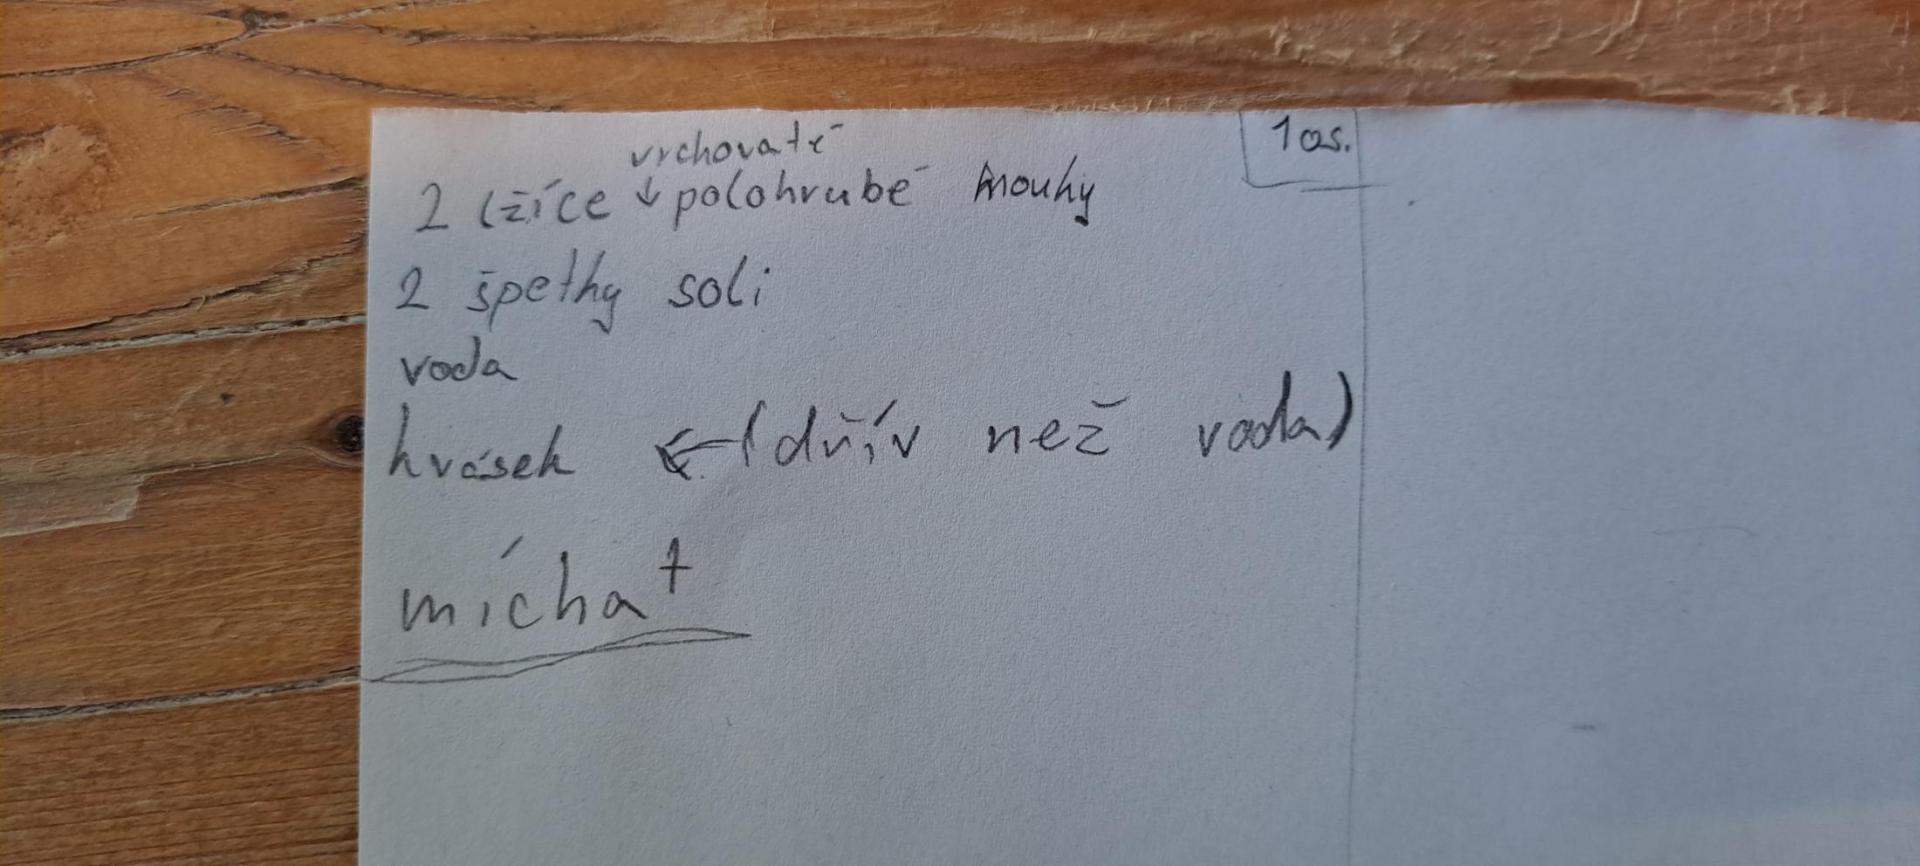 vrchovaté
1 os.
2 lžíce ↓ polohrubé mouky
2 špetky soli
voda
kvásek ← (dřív než voda)
míchat